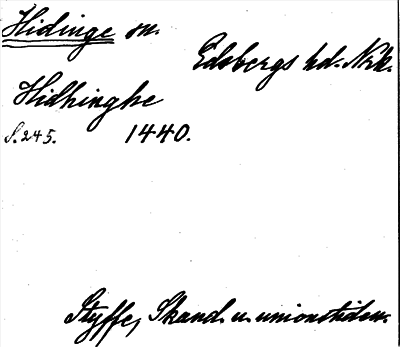 Hidinge sn.
Edsbergs hd. Nrk.
Hidhinghe
S. 245. 1440.
Styffe, Skand. u. unionstiden.